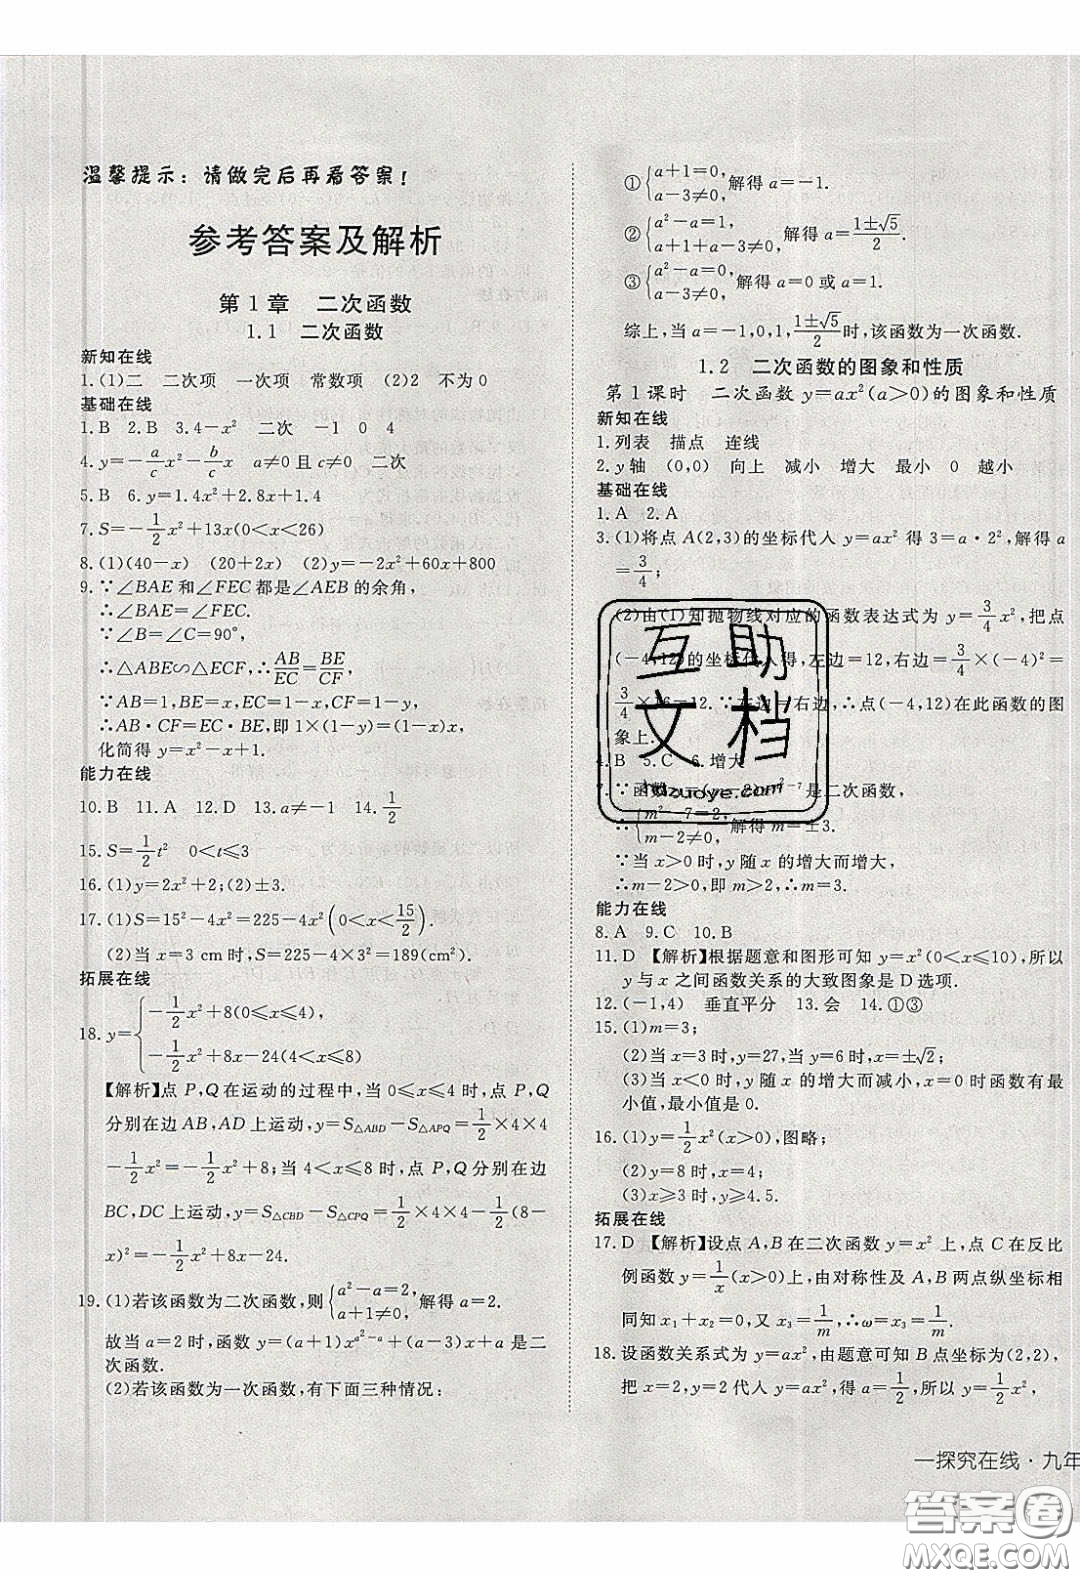 温馨提示：请做完后再看答案！
参考答案及解析
第1章 二次函数
1.1 二次函数
新知在线
1.(1)二 二次项 一次项 常数项 (2)2 不为0
基础在线
1.B 2.B 3.4－x² 二次 －1 0 4
4.y＝－a/c x²－b/c x a≠0且c≠0 二次
5.B 6.y＝1.4x²＋2.8x＋1.4
7.S＝－1/2 x²＋13x(0＜x＜26)
8.(1)(40－x) (20＋2x) (2)y＝－2x²＋60x＋800
9.∵∠BAE和∠FEC都是∠AEB的余角，
∴∠BAE＝∠FEC.
∵∠B＝∠C＝90°，
∴△ABE∽△ECF，∴AB/EC＝BE/CF.
∵AB＝1，BE＝x，EC＝1－x，CF＝1－y，
∴AB·CF＝EC·BE，即1×(1－y)＝(1－x)x，
化简得y＝x²－x＋1.
能力在线
10.B 11.A 12.D 13.a≠－1 14.1/2
15.S＝1/2 t² 0＜t≤3
16.(1)y＝2x²＋2；(2)±3.
17.(1)S＝15²－4x²＝225－4x²(0＜x＜15/2).
(2)当x＝3 cm时，S＝225－4×3²＝189(cm²).
拓展在线
18.y＝{－1/2 x²＋8(0≤x≤4)，
－1/2 x²＋8x－24(4＜x≤8)
【解析】点P，Q在运动的过程中，当0≤x≤4时，P，Q
分别在边AB，AD上运动，y＝S△ABD－S△APQ＝1/2×4×4
－1/2 x²＝－1/2 x²＋8；当4＜x≤8时，P，Q分别在边
BC，DC上运动，y＝S△CBD－S△CPQ＝1/2×4×4－1/2(8－
x)²＝－1/2 x²＋8x－24.
19.(1)若该函数为二次函数，则{a²－a＝2，a＋1≠0，解得a＝2.
故当a＝2时，函数y＝(a＋1)x^(a²－a)＋(a－3)x＋a是二
次函数.
(2)若该函数为一次函数，有下面三种情况：
①{a＋1＝0，a－3≠0，解得a＝－1.
②{a²－a＝1，a＋1＋a－3≠0，解得a＝(1±√5)/2.
③{a²－a＝0，a－3≠0，解得a＝0或a＝1.
综上，当a＝－1,0,1,(1±√5)/2时，该函数为一次函数.
1.2 二次函数的图象和性质
第1课时 二次函数y＝ax²(a＞0)的图象和性质
新知在线
1.列表 描点 连线
2.y轴 (0,0) 向上 减小 增大 最小 0 越小
基础在线
1.A 2.A
3.(1)将点A(2,3)的坐标代入y＝ax²得3＝a·2²，解得a
＝3/4；
(2)由(1)知抛物线对应的函数表达式为y＝3/4 x²，把点
(－4,12)的坐标代入得，左边＝12，右边＝3/4×(－4)²＝
3/4×16＝12.∵左边＝右边，∴点(－4,12)在此函数的图
象上.
4.B 5.C 6.增大
7.∵函数y＝(m－2)x^(m²－7)是二次函数，
∴{m²－7＝2，m－2≠0，解得m＝±3.
∵当x＞0时，y随x的增大而增大，
∴m－2＞0，即m＞2，∴m＝3.
能力在线
8.A 9.C 10.B
11.D 【解析】根据题意和图形可知y＝x²(0＜x≤10)，所以
y与x之间函数关系的大致图象是D选项.
12.(－1,4) 垂直平分 13.会 14.①③
15.(1)m＝3；
(2)当x＝3时，y＝27，当y＝6时，x＝±√2；
(3)当x＜0时，y随x的增大而减小，x＝0时函数有最
小值，最小值是0.
16.(1)y＝1/2 x²(x＞0)，图略；
(2)y＝8时，x＝4；
(3)x≥3时，y≥4.5.
拓展在线
17.D 【解析】设点A，B在二次函数y＝x²上，点C在反比
例函数y＝1/x(x＞0)上，由对称性及A，B两点纵坐标相
同知x₁＋x₂＝0，又x₃＝1/m，∴ω＝x₃＝1/m.
18.设函数关系式为y＝ax²，由题意可知B点坐标为(2,2)，
把x＝2，y＝2代入y＝ax²，得a＝1/2，所以y＝1/2 x²，
互助
文档
hdzuoye.com
一探究在线·九年
答案卷
MXQE.COM